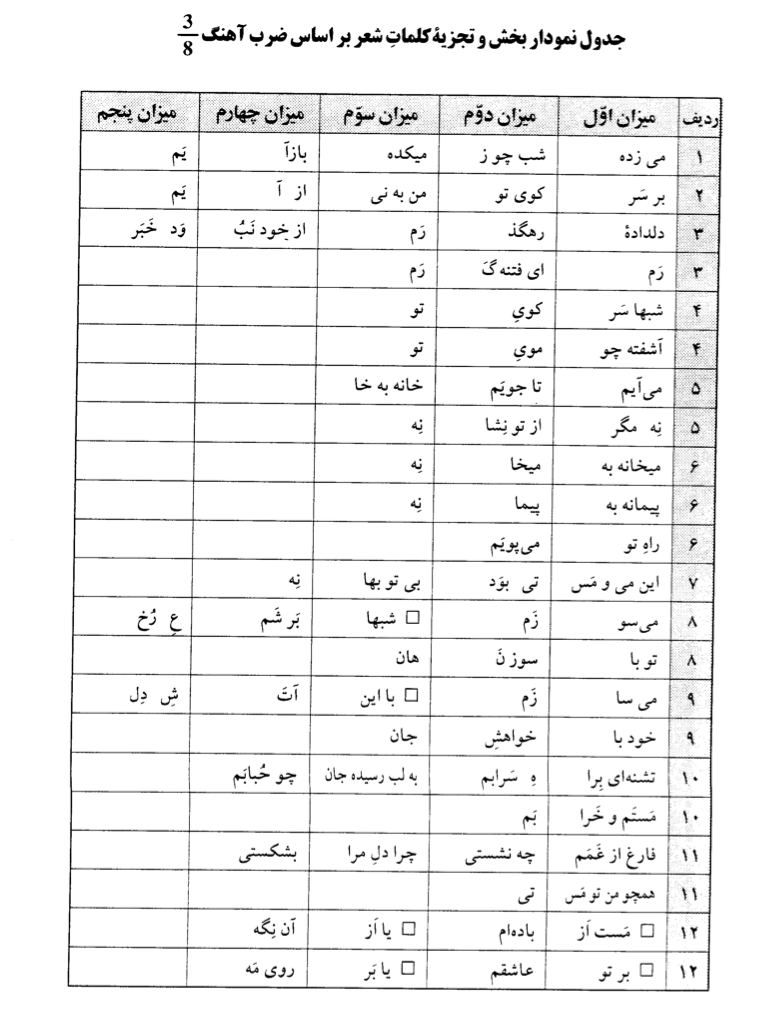 جدول نمودار بخش و تجزیهٔ کلماتِ شعر بر اساس ضرب آهنگ 3/8
ردیف میزان اوّل میزان دوّم میزان سوّم میزان چهارم میزان پنجم
۱ می زده شب چو ز میکده بازآ یَم
۲ بر سَر کوی تو من به نی از آ یَم
۳ دلدادهٔ رهگذ رَم از خود نَبُ وَد خَبَر
۳ رَم ای فتنه گَ رَم
۴ شبها سَر کویِ تو
۴ آشفته چو مویِ تو
۵ می‌آیم تا جویَم خانه به خا
۵ نِه مگر از تو نِشا نِه
۶ میخانه به میخا نِه
۶ پیمانه به پیما نِه
۶ راهِ تو می‌پویَم
۷ این می و مَس تی بوَد بی تو بها نِه
۸ می‌سو زَم □ شبها بَر شَم عِ رُخ
۸ تو با سوز نَ هان
۹ می سا زَم □ با این آتَ شِ دِل
۹ خود با خواهشِ جان
۱۰ تشنه‌ای بِرا هِ سَرابم به لب رسیده جان چو حُبابَم
۱۰ مَستَم و خَرا بَم
۱۱ فارغ از غَمَم چه نشستی چرا دلِ مرا بشکستی
۱۱ همچو من تو مَس تی
۱۲ □ مَست اَز باده‌ام □ یا اَز آن نِگه
۱۲ □ بر تو عاشقم □ یا بَر روی مَه